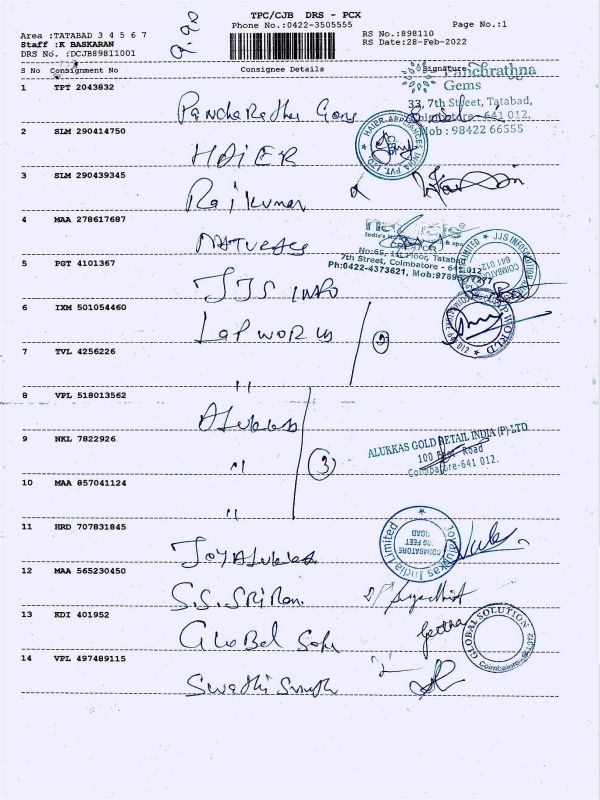 TPC/CJB DRS - PCX
Phone No.:0422-3505555
Page No.:1
Area :TATABAD 3 4 5 6 7
Staff :K BASKARAN
DRS No. :DCJB89811001
9.90
RS No.:898110
RS Date:28-Feb-2022
S No Consignment No Consignee Details Signature
1 TPT 2043832
Pancharathna Gems
33, 7th Street, Tatabad,
Coimbatore - 641 012.
Mob : 98422 66555
2 SLM 290414750
HAIER
HAIER APPLIANCES INDIA PVT. LTD.
3 SLM 290439345
Rajkumar
4 MAA 278617687
NATURALS
naturals
7th Street, Coimbatore - 641 012
Ph:0422-4373621, Mob:
5 PGT 4101367
JJS INFO
COIMBATORE 641 012
6 IXM 501054460
LAPWORLD
LAPWORLD
2
7 TVL 4256226
"
8 VPL 518013562
Alukkas
9 NKL 7822926
"
3
ALUKKAS GOLD RETAIL INDIA (P) LTD
100 Feet Road
Coimbatore-641 012.
10 MAA 857041124
"
11 HRD 707831845
Joyalukkas
Joyalukkas India Limited
100 FEET ROAD
COIMBATORE
12 MAA 565230450
S.S. SRIRam
13 KDI 401952
Global Solu
Geetha
GLOBAL SOLUTION
Coimbatore-641012
14 VPL 497489115